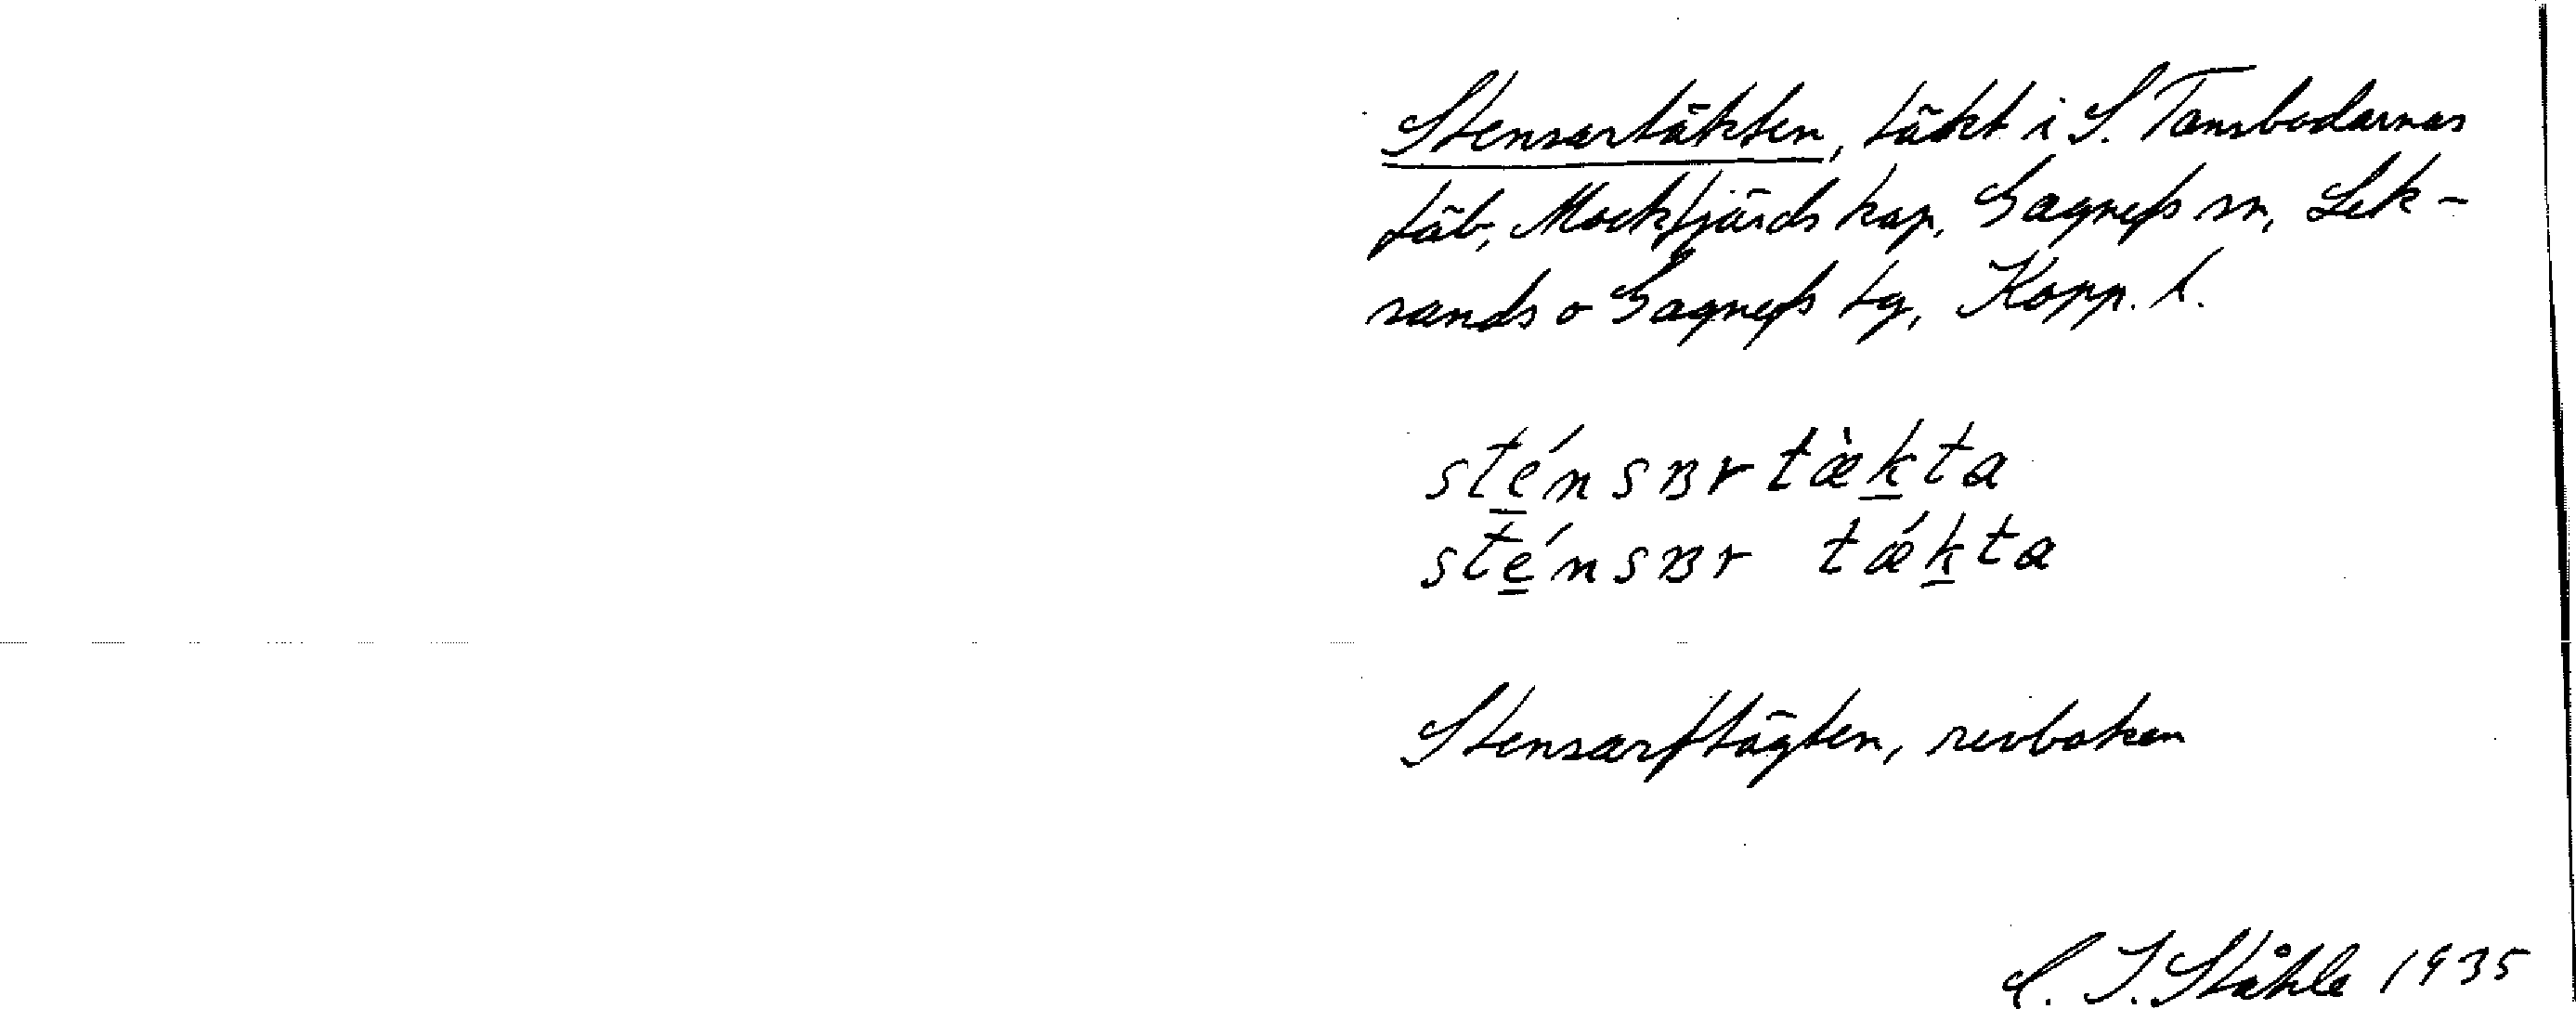 Stensartäkten, täkt i S. Tansbodarnas
fäb, Mockfjärds kap, Gagnefs sn, Lek-
sands o Gagnefs tg, Kopp. l.
sténsʙrtæ̀kta
sténsʙr tǽkta
Stensarftägten, revboken
C. I. Ståhle 1935